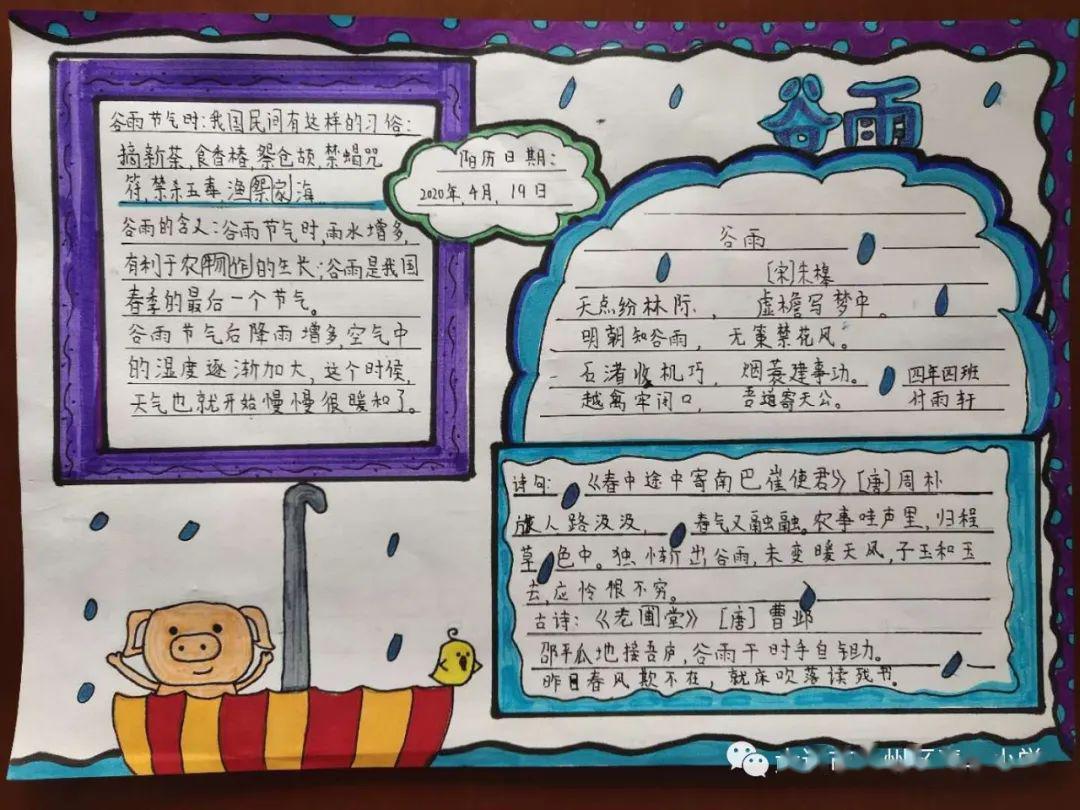 谷雨
谷雨节气时:我国民间有这样的习俗:
摘新茶,食香椿,祭仓颉,禁蝎咒
符,禁杀五毒,渔祭家海
谷雨的含义:谷雨节气时,雨水增多,
有利于农物作的生长;谷雨是我国
春季的最后一个节气。
谷雨节气后降雨增多,空气中
的湿度逐渐加大,这个时候,
天气也就开始慢慢很暖和了。
阳历日期:
2020年,4月,19日
谷雨
[宋]朱槔
天点纷林际, 虚檐写梦中。
明朝知谷雨, 无策禁花风。
石渚收机巧, 烟蓑建事功。
越禽牢闭口, 吾道寄天公。
四年四班
付雨轩
诗句:《春中途中寄南巴崔使君》[唐]周朴
旅人路汲汲, 春气又融融。农事哇声里,归程
草色中。独惭出谷雨,未变暖天风,子玉和玉
去,应怜恨不穷。
古诗:《老圃堂》[唐]曹邺
邵平瓜地接吾庐,谷雨干时手自锄。
昨日春风欺不在,就床吹落读残书。